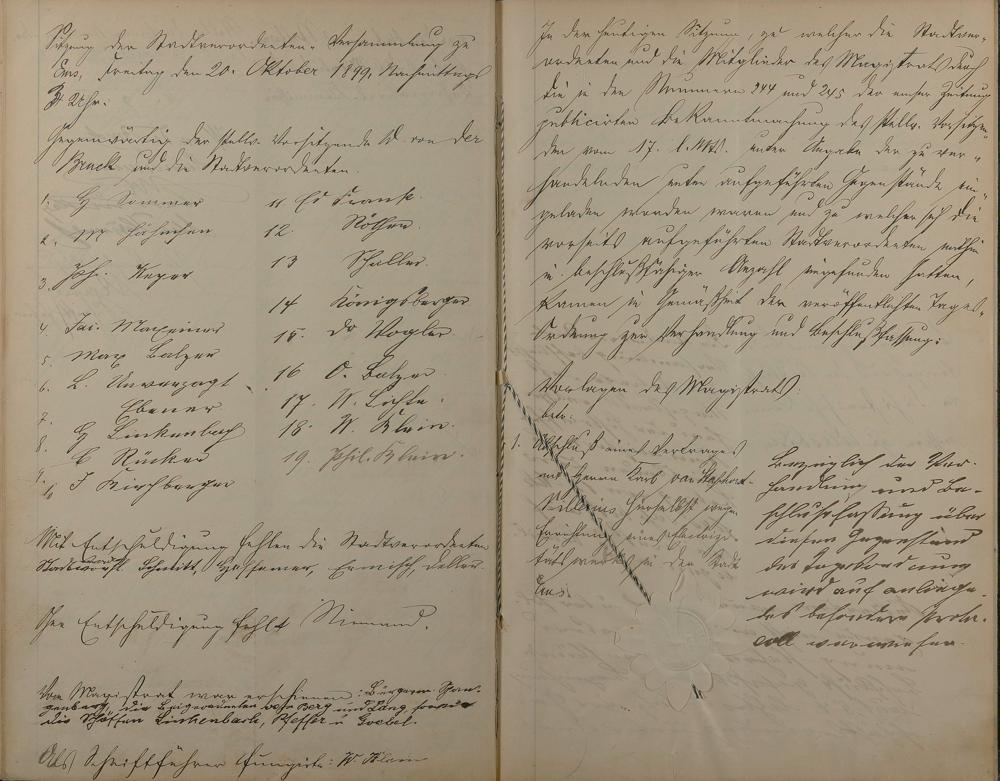 Sitzung der Stadtverordneten-Versammlung zu
Ems, Freitag den 20. Oktober 1899, Nachmittags
3 Uhr.
Gegenwärtig der stellv. Vorsitzende D von der
Bruck und die Stadtverordneten.
1. H Sommer
2. M Hähnchen
3. Joh. Meyer
4. Jac. Maxeiner
5. Max Balzer
6. L. Unverzagt
7. Ebener
8. H Linkenbach
9. C Rücker
10 J Kirchberger
11 Ed Frank.
12 Nöthen.
13 Schaller.
14 Königsberger
15. Dr Vogler
16 O. Balzer
17. W. Lichte.
18. W. Klein.
19. Phil. Klein.
Mit Entschuldigung fehlen die Stadtverordneten
Schmitt, Hassemer, Ermisch,
Ohne Entschuldigung fehlt Niemand.
Vom Magistrat war erschienen: Bürgerm. Span-
genberg, die Beigeordneten von Berg und Lang, sowie
die Schöffen Linkenbach, Pfeffer u Goebel.
Als Schriftführer fungirte: W. Klein
In der heutigen Sitzung, zu welcher die Stadtver-
ordneten und die Mitglieder des Magistrats durch
die in den Nummern 244 und 245 der Emser Zeitung
publicirten Bekanntmachung des stellv. Vorsitzen-
den vom 17. l. Mts. unter Angabe der zu ver-
handelnden unten aufgeführten Gegenstände ein-
geladen worden waren und zu welcher sich die
vorseits aufgeführten Stadtverordneten mithin
in beschlußfähiger Anzahl eingefunden hatten,
kamen in Gemäßheit der veröffentlichten Tages-
Ordnung zur Verhandlung und Beschlußfassung:
Vorlagen des Magistrats.
betr:
1. Abschluß eines Vertrages
mit Herrn Karl
hierselbst wegen
Errichtung eines Elektrizi-
tätswerks in der Stadt
Ems.
Bezüglich der Ver-
handlung und Be-
schlussfassung über
diesen Gegenstand
der Tagesordnung
wird auf anliegen-
des besondere Proto-
coll verwiesen.